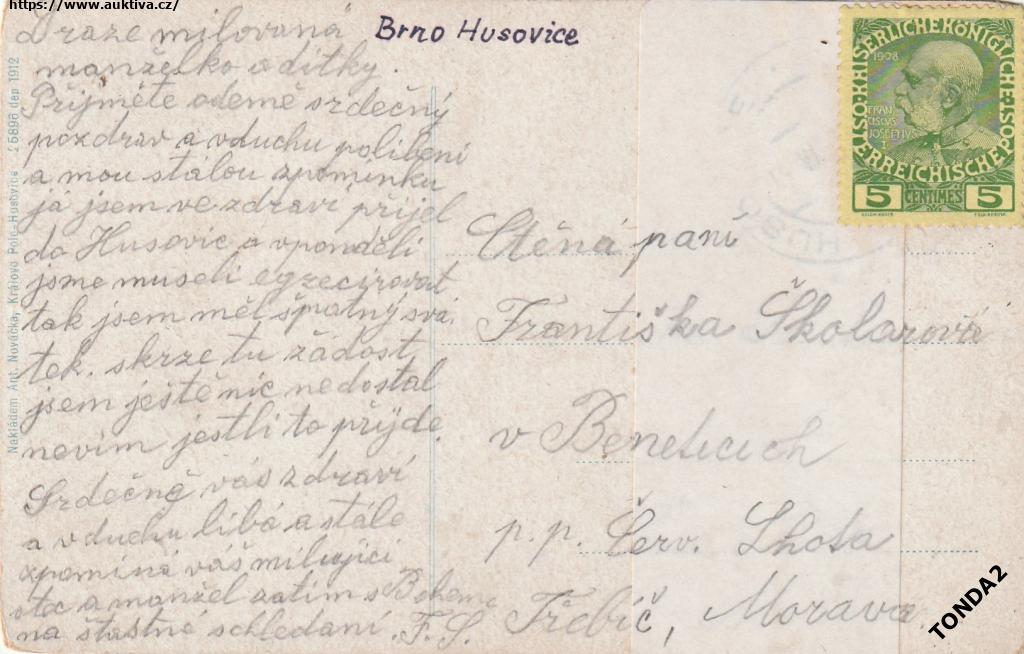 https://www.auktiva.cz/
Brno Husovice
Draze milovaná
manželko a ditky.
Přijměte odemě srdečný
pozdrav a vduchu políbení
a mou stálou zpomínku
já jsem ve zdraví přijel
do Husovic a vpondělí
jsme museli egzecirovat
tak jsem měl špatný svá
tek. skrze tu žádost
jsem ještě nic nedostal
nevím jestli to přijde.
Srdečně vás zdraví
a vduchu líbá a stále
zpomíná váš milující
otec a manžel zatim s Bohem
na štastné schledaní. F. S.
Ctěná paní
Františka Školarová
v Beneticich
p. p. Červ. Lhota
Třebíč, Morava
Nakládem Ant. Nováčka, Králova Pole-Husovice 25896 dep 1912
KAISERLICHE KÖNIGLICHE ÖSTERREICHISCHE POST
1908
FRANCISCVS JOSEPHVS I
5 CENTIMES 5
HUSO
TONDA2